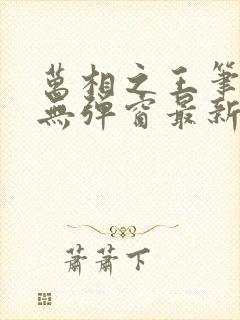 萬相之王筆
無彈窗最新
蕭蕭下